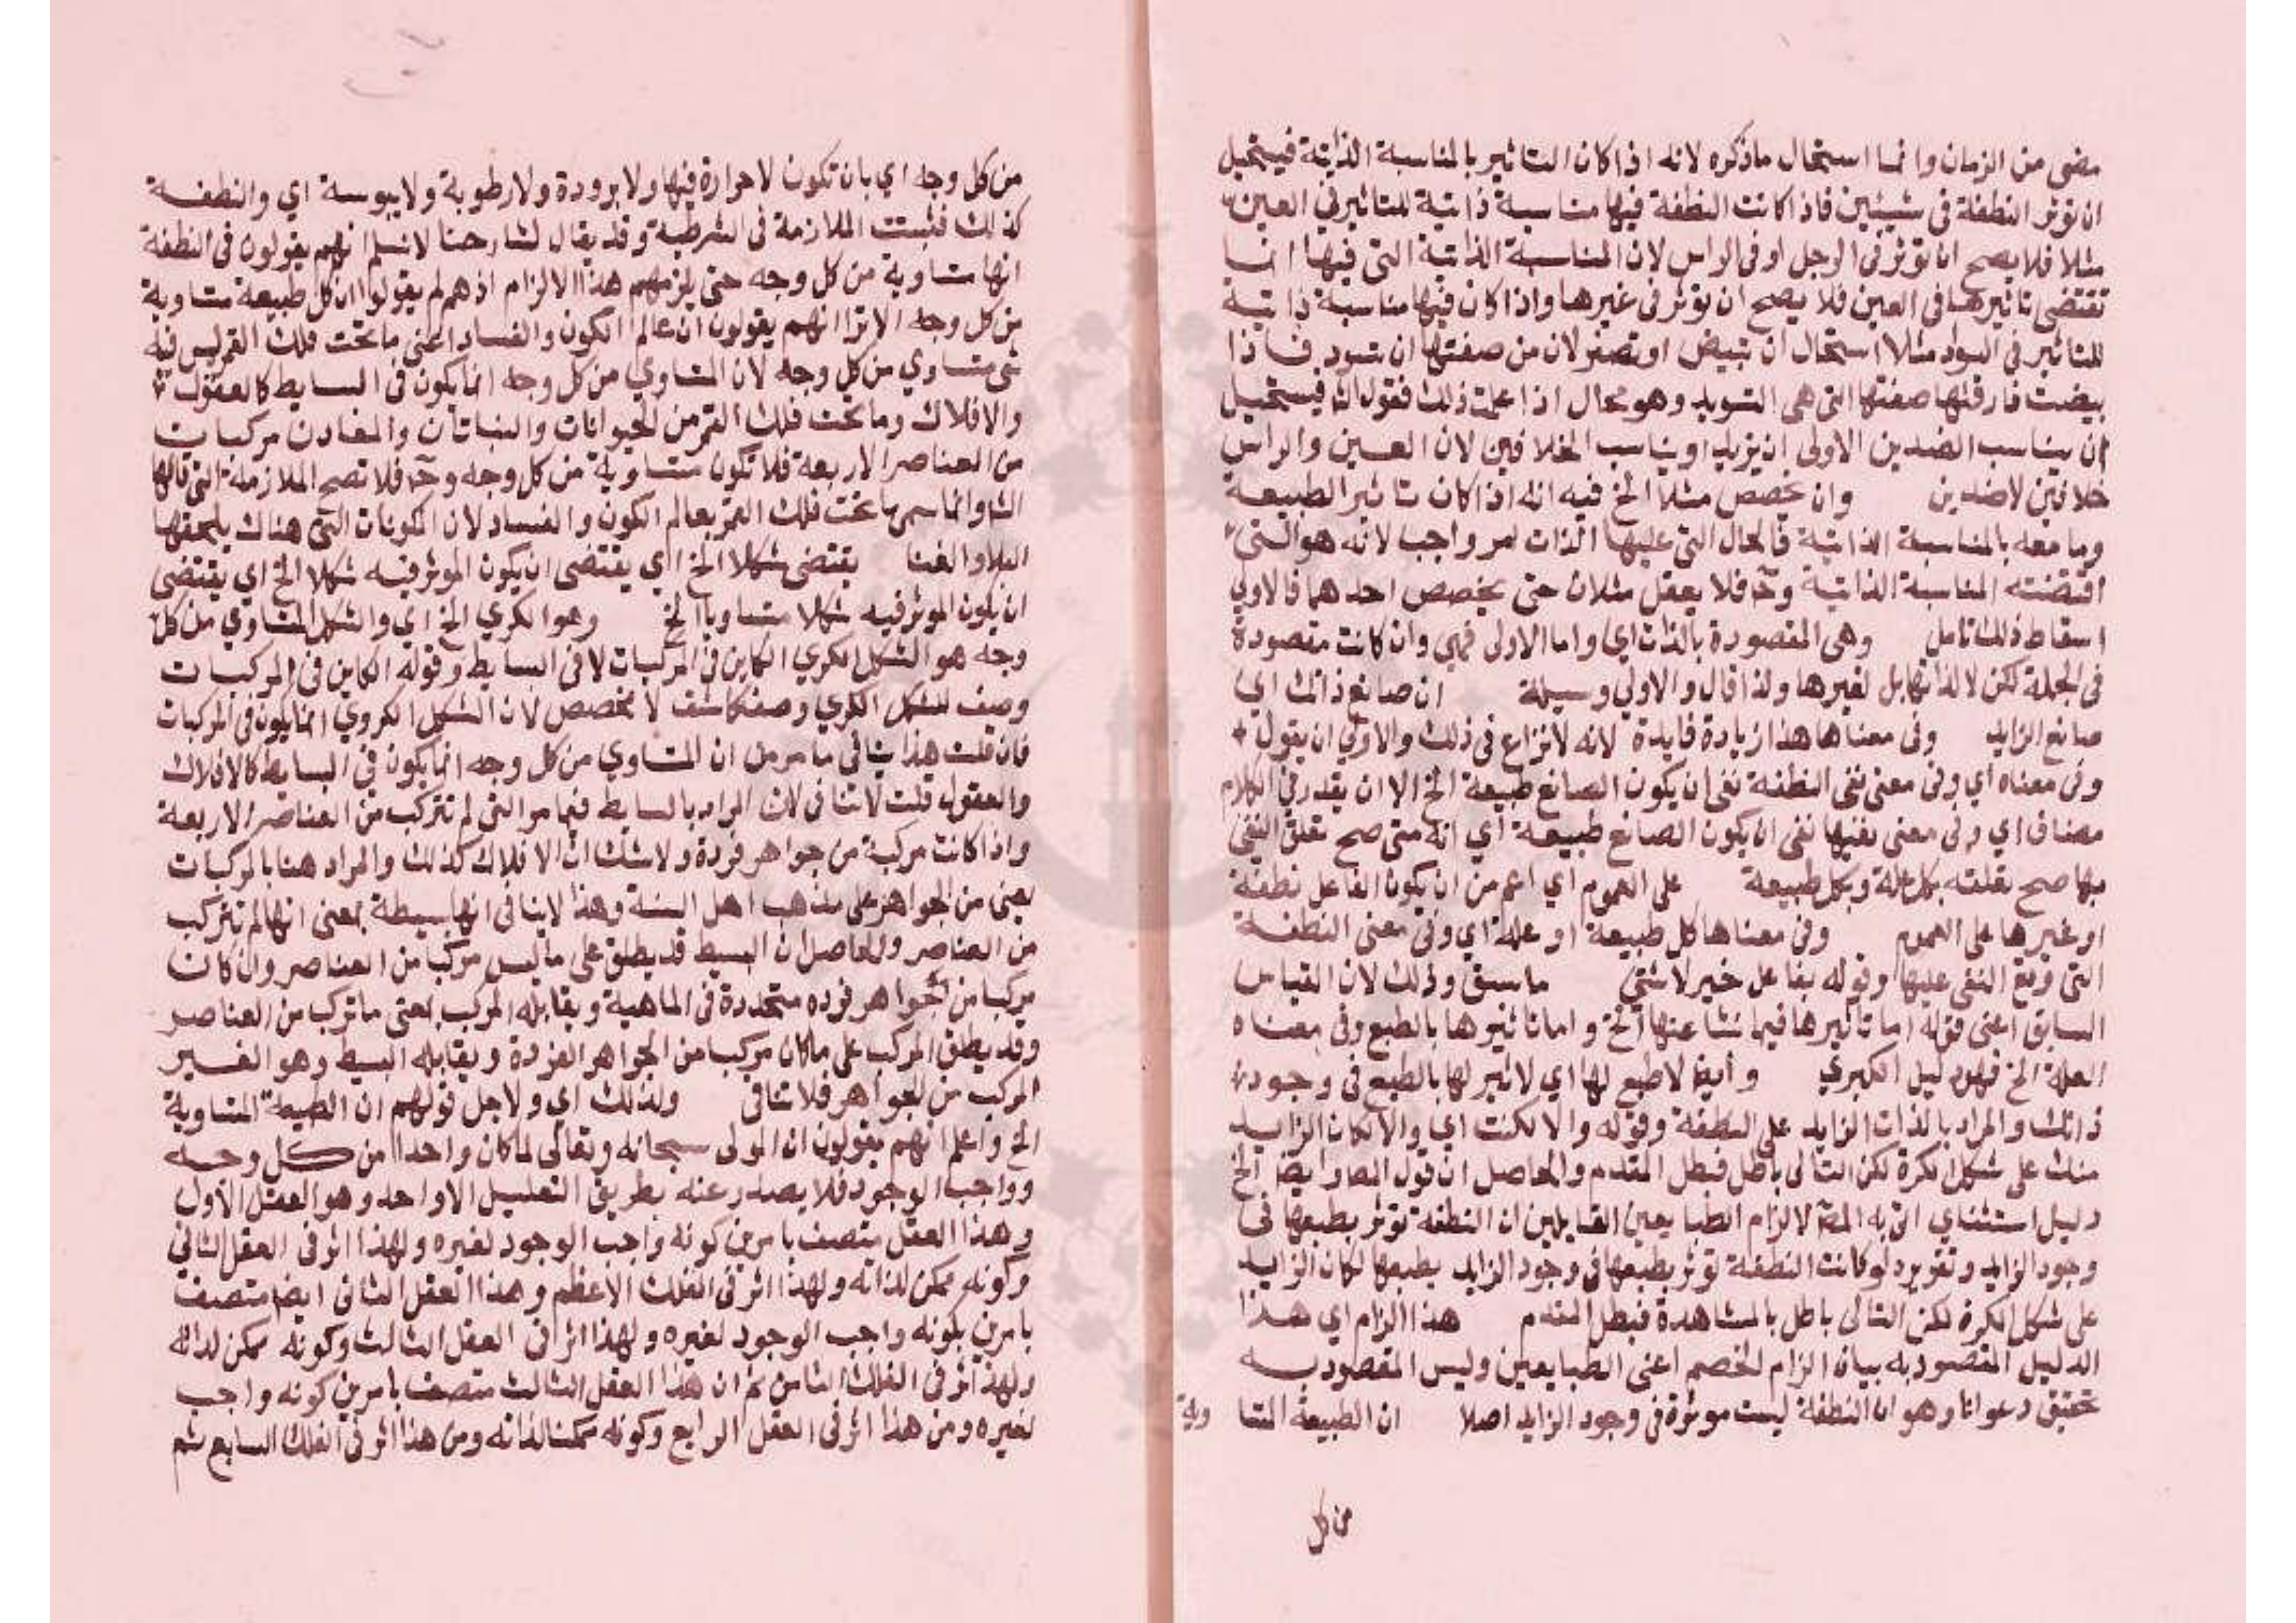 مضى من الزمان وانما استحال ما ذكره لانه اذا كان التاثير بالمناسبة الذاتية فيستحيل
ان توثر النطفة فى شيئين فاذا كانت النطفة فيها مناسبة ذاتية للتاثير في العين
مثلا فلا يصح ان توثر فى الرجل او فى الراس لان المناسبة الذاتية التى فيها انما
تقتضى تاثيرها فى العين فلا يصح ان توثر فى غيرها واذا كان فيها مناسبة ذاتية
للتاثير في السواد مثلا استحال ان تبيض او تصفر لان من صفتها ان تسود فاذا
بيضت فارقتها صفتها التى هى التسويد وهو محال اذا علمت ذلك فقول الش فيستحيل
ان يناسب الضدين الاولى ان يزيد او يناسب الخلافين لان العين والراس
خلافين لا ضدين وان تخصص مثلا الخ فيه انه اذا كان تاثير الطبيعة
وما معه بالمناسبة الذاتية فالحال التى عليها الذات امر واجب لانه هو الشى
اقتضته المناسبة الذاتية وح فلا يعقل مثلان حتى يخصص احدهما فالاولى
اسقاط ذلك تامل وهى المقصودة بالذات اي واما الاولى فهى وان كانت مقصودة
فى الجملة لكن لا لذاتها بل لغيرها ولذا قال والاولى وسيلة ان صانع ذاتك اي
صانع الزايد وفى معناها هذا زيادة فايدة لانه لا نزاع فى ذلك والاولى ان يقول
وفى معناه اي وفى معنى نفى النطفة نفى ان يكون الصانع طبيعة الخ الا ان يقدر في الكلام
مضاف اي وفى معنى نفيها نفى ان يكون الصانع طبيعة اي انه متى صح تعلق النفى
بها صح تعلقه بكل علة وبكل طبيعة على العموم اي اعم من ان يكون الفاعل نطفة
او غيرها على العموم وفى معناها كل طبيعة او علة اي وفى معنى النطفة
التى وقع النفى عليها وقوله بفاعل خبر لا شى ما سبق وذلك لان القياس
السابق اعنى قوله اما تاثيرها فيما نشا عنها الخ واما تاثيرها بالطبع وفى معناه
العلة الخ فهو دليل الكبرى وايضا لا طبع لها اي لا تاثير لها بالطبع فى وجود
ذاتك والمراد بالذات الزايد على النطفة وقوله والا لكنت اي والا لكان الزايد
منك على شكل الكرة لكن التالى باطل فبطل المقدم والحاصل ان قول المص وايضا الخ
دليل استثناي اتى به المص لالزام الطبايعين القايلين ان النطفة توثر بطبعها فى
وجود الزايد وتقريره لو كانت النطفة توثر بطبعها فى وجود الزايد بطبعها لكان الزايد
على شكل الكرة لكن التالى باطل بالمشاهدة فبطل المقدم هذا الزام اي هذا
الدليل المقصود به بيان الزام الخصم اعنى الطبايعين وليس المقصود به
تحقيق دعوانا وهو ان النطفة ليست موثرة فى وجود الزايد اصلا ان الطبيعة المتساوية
من كل
من كل وجه اي بان تكون لا حرارة فيها ولا برودة ولا رطوبة ولا يبوسة اي والنطفة
كذلك فثبتت الملازمة فى الشرطية وقد يقال لشارحنا لا نسلم انهم يقولون فى النطفة
انها متساوية من كل وجه حتى يلزمهم هذا الالزام اذ هم لم يقولوا ان كل طبيعة متساوية
من كل وجه الا ترا انهم يقولون ان عالم الكون والفساد اعنى ما تحت فلك القمر ليس فيه
شى متساوي من كل وجه لان المتساوي من كل وجه انما يكون فى البسايط كالعقول
والافلاك وما تحت فلك القمر من الحيوانات والنباتات والمعادن مركبات
من العناصر الاربعة فلا تكون متساوية من كل وجه وح فلا تصح الملازمة التى قالها
الش وانما سمى ما تحت فلك القمر بعالم الكون والفساد لان المكونات التى هناك يلحقها
البلا والفنا يقتضى شكلا الخ اي يقتضى ان يكون الموثر فيه شكلا الخ اي يقتضى
ان يكون الموثر فيه شكلا متساويا الخ وهو الكري الخ اي والشكل المتساوي من كل
وجه هو الشكل الكري الكاين فى المركبات لا فى البسايط وقوله الكاين فى المركبات
وصف للشكل الكري وصف كاشف لا مخصص لان الشكل الكروي انما يكون فى المركبات
فان قلت هذا ينافى ما مر من ان المتساوي من كل وجه انما يكون فى البسايط كالافلاك
والعقول قلت لا تنافى لان المراد بالبسايط فيما مر التى لم تتركب من العناصر الاربعة
واذا كانت مركبة من جواهر فردة ولا شك ان الافلاك كذلك والمراد هنا بالمركبات
يعنى من الجواهر على مذهب اهل السنة وهذا لا ينافى انها بسيطة بمعنى انها لم تتركب
من العناصر والحاصل ان البسيط قد يطلق على ما ليس مركبا من العناصر وان كان
مركبا من جواهر فرده متحدة فى الماهية ويقابله المركب بمعنى ما تركب من العناصر
وقد يطلق المركب على ما كان مركبا من الجواهر الفردة ويقابله البسيط وهو الغير
المركب من الجواهر فلا تنافى ولذلك اي ولاجل قولهم ان الطبيعة المتساوية
الخ واعلم انهم يقولون ان المولى سبحانه وتعالى لما كان واحدا من كل وجه
وواجب الوجود فلا يصدر عنه بطريق التعليل الا واحد وهو العقل الاول
وهذا العقل متصف بامرين كونه واجب الوجود لغيره ولهذا اثر فى العقل الثاني
وكونه ممكن لذاته ولهذا اثر فى الفلك الاعظم وهذا العقل الثانى ايضا متصف
بامرين بكونه واجب الوجود لغيره ولهذا اثر فى العقل الثالث وكونه ممكن لذاته
ولهذا اثر فى الفلك الثامن ثم ان هذا العقل الثالث متصف بامرين كونه واجب
لغيره ومن هذا اثر فى العقل الرابع وكونه ممكنا لذاته ومن هذا اثر فى الفلك السابع ثم